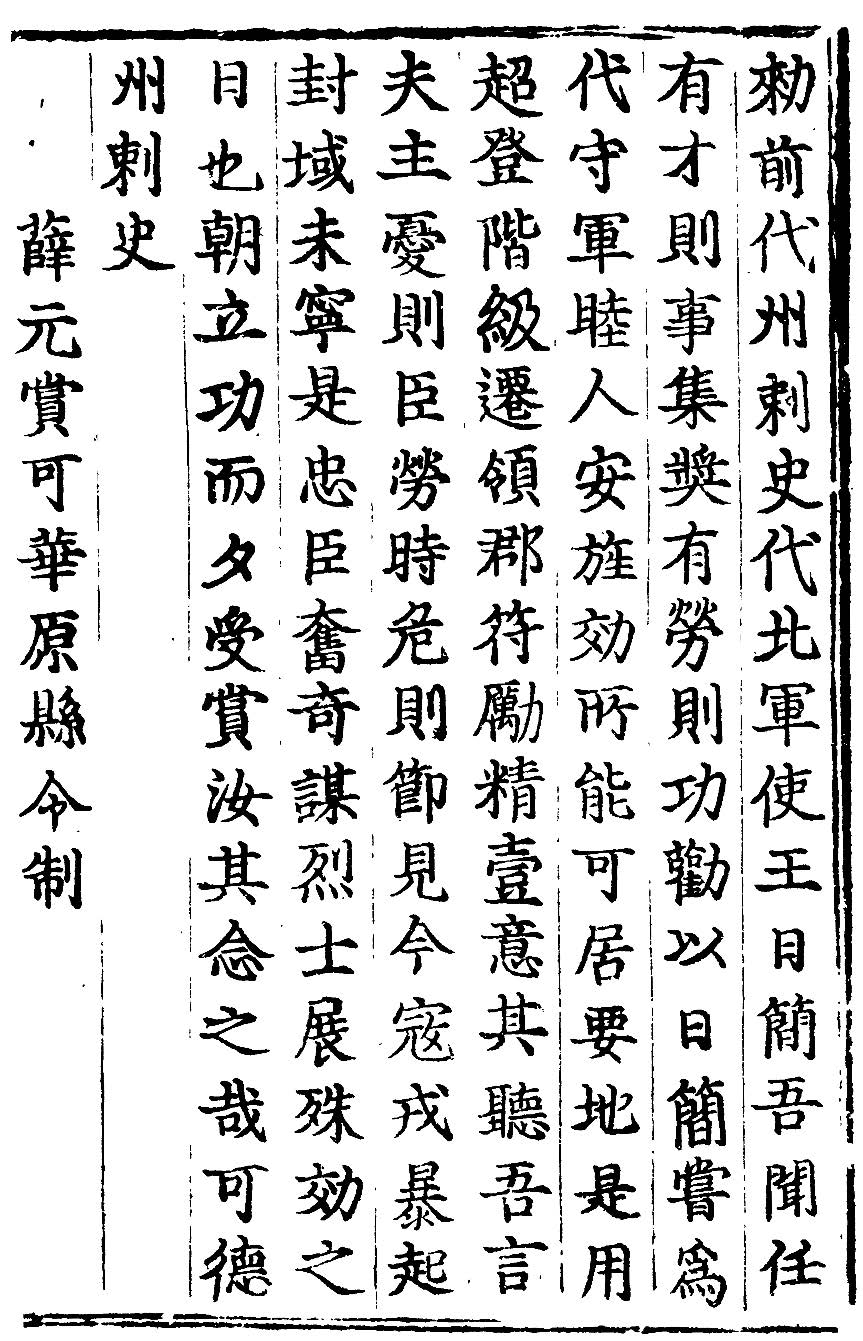 勑前代州刺史代北軍使王日簡吾聞任
有才則事集奬有勞則功勸以日簡嘗爲
代守軍睦人安旌効所能可居要地是用
超登階級遷領郡符勵精壹意其聽吾言
夫主憂則臣勞時危則節見今寇戎暴起
封域未寧是忠臣奮奇謀烈士展殊効之
日也朝立功而夕受賞汝其念之哉可德
州刺史
薛元賞可華原縣令制